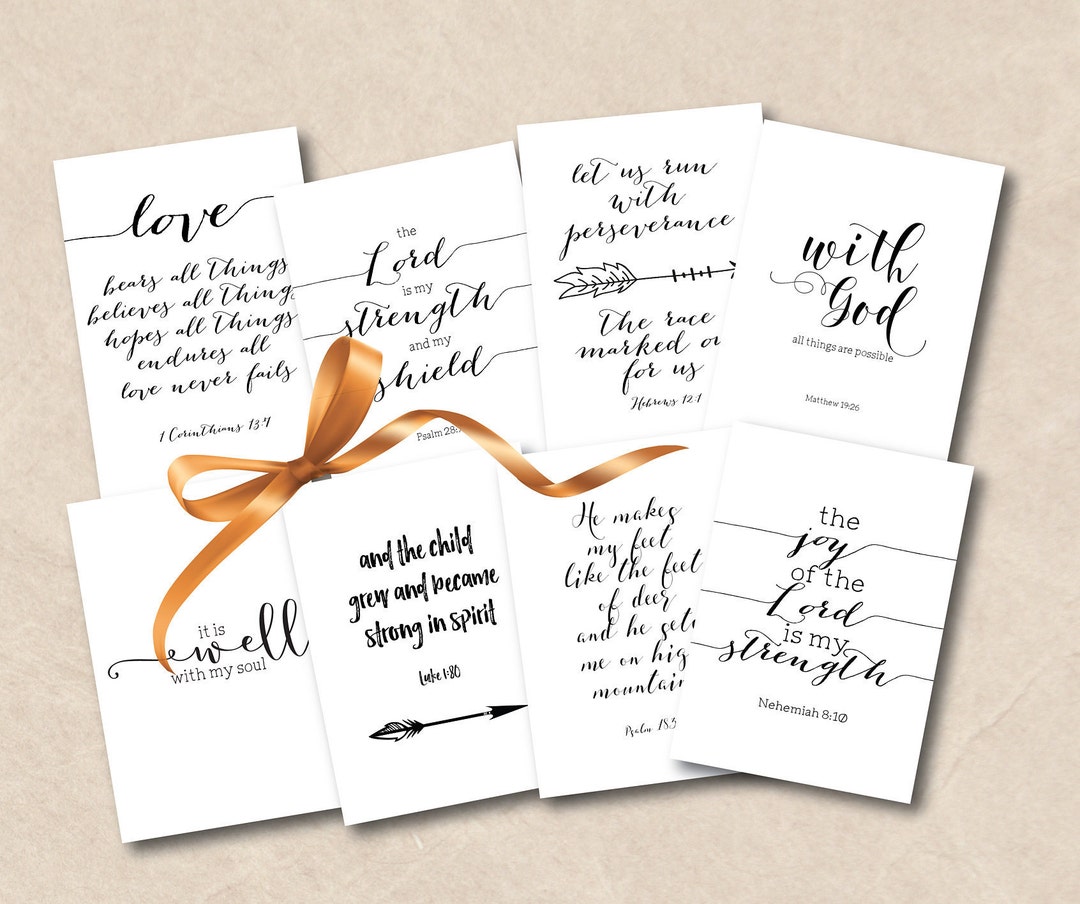 love
bears all Things
believes all Things
hopes all Things
endures all
love never fails
1 Corinthians 13:7
the
Lord
is my
strength
and my
shield
Psalm 28:
let us run
with
perseverance
The race
marked
for us
Hebrews 12:1
with
God
all things are possible
Matthew 19:26
it is
well
with my soul
and the child
grew and became
strong in spirit
Luke 1:80
He makes
my feet
like the feet
of deer
and he
me on
Psalm
the
joy
of the
Lord
is my
strength
Nehemiah 8:10